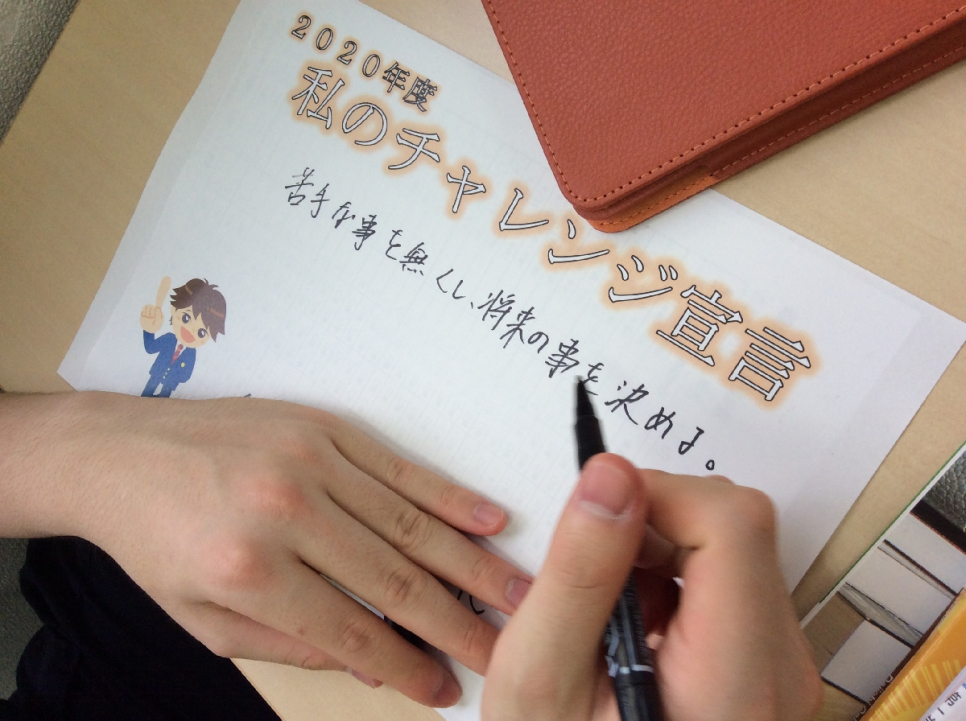 2020年度
私のチャレンジ宣言
苦手な事を無くし、将来の事を決める。